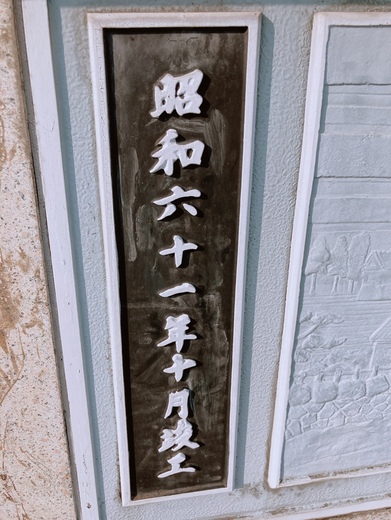 昭和六十一年十月竣工